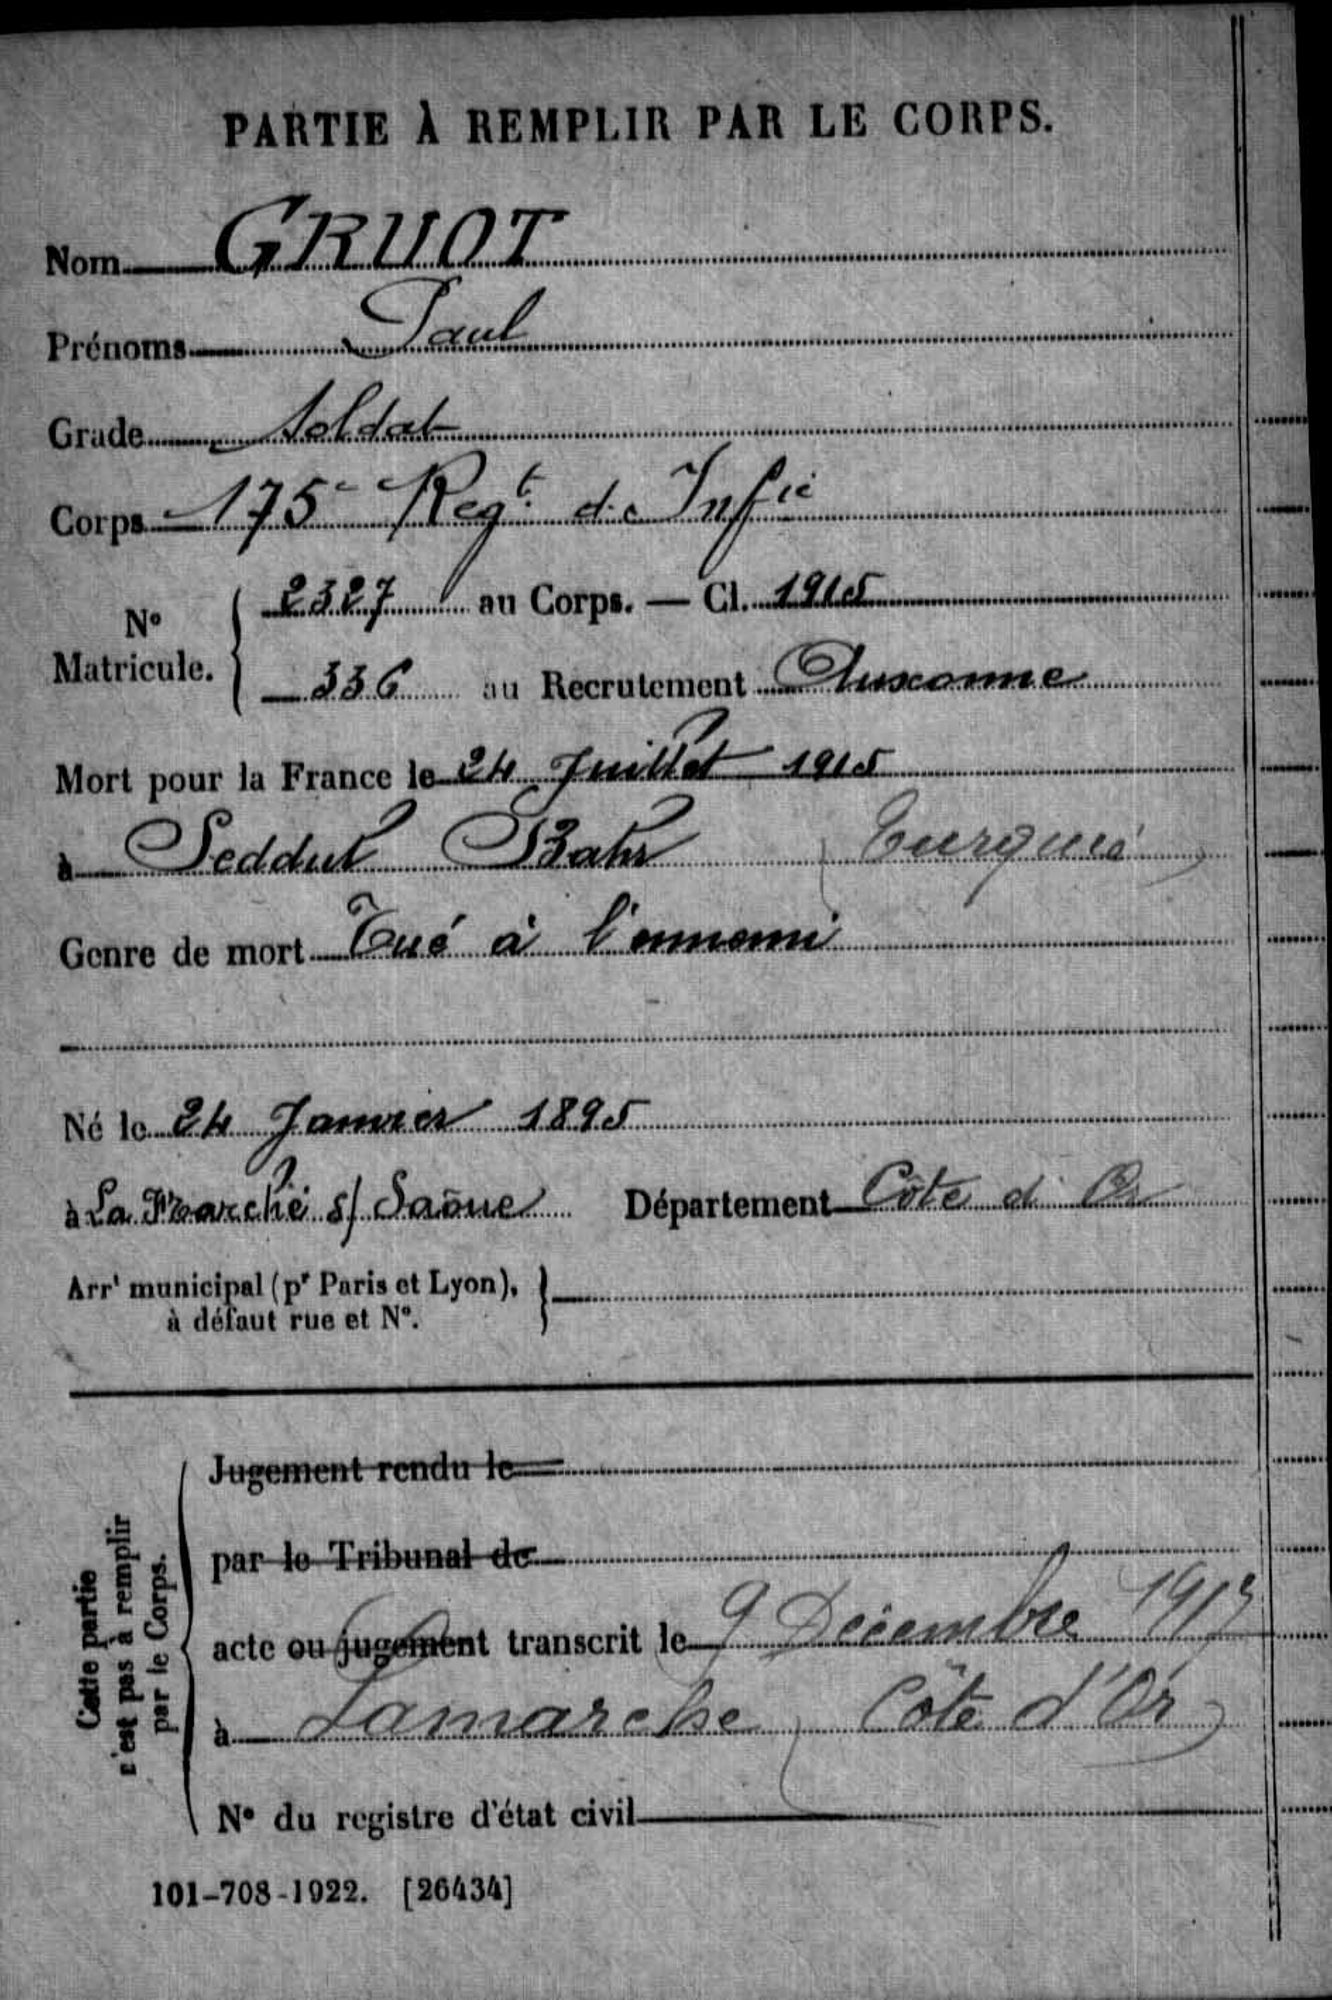 PARTIE À REMPLIR PAR LE CORPS.
Nom GRUOT
Prénoms Paul
Grade Soldat
Corps 175e Regt. de Infie
No Matricule. 2327 au Corps. — Cl. 1915
336 au Recrutement Auxonne
Mort pour la France le 24 Juillet 1915
à Seddul Bahr (Turquie)
Genre de mort Tué à l'ennemi
Né le 24 Janvier 1895
à La Marche s/ Saône Département Côte d'Or
Arrt municipal (pr Paris et Lyon),
à défaut rue et No.
Cette partie n'est pas à remplir par le Corps.
Jugement rendu le
par le Tribunal de
acte ou jugement transcrit le 9 Décembre
à Lamarche (Côte d'Or)
No du registre d'état civil
101-708-1922. [26434]